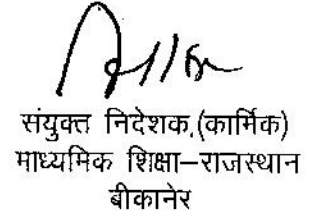 संयुक्त निदेशक,(कार्मिक)
माध्यमिक शिक्षा–राजस्थान
बीकानेर